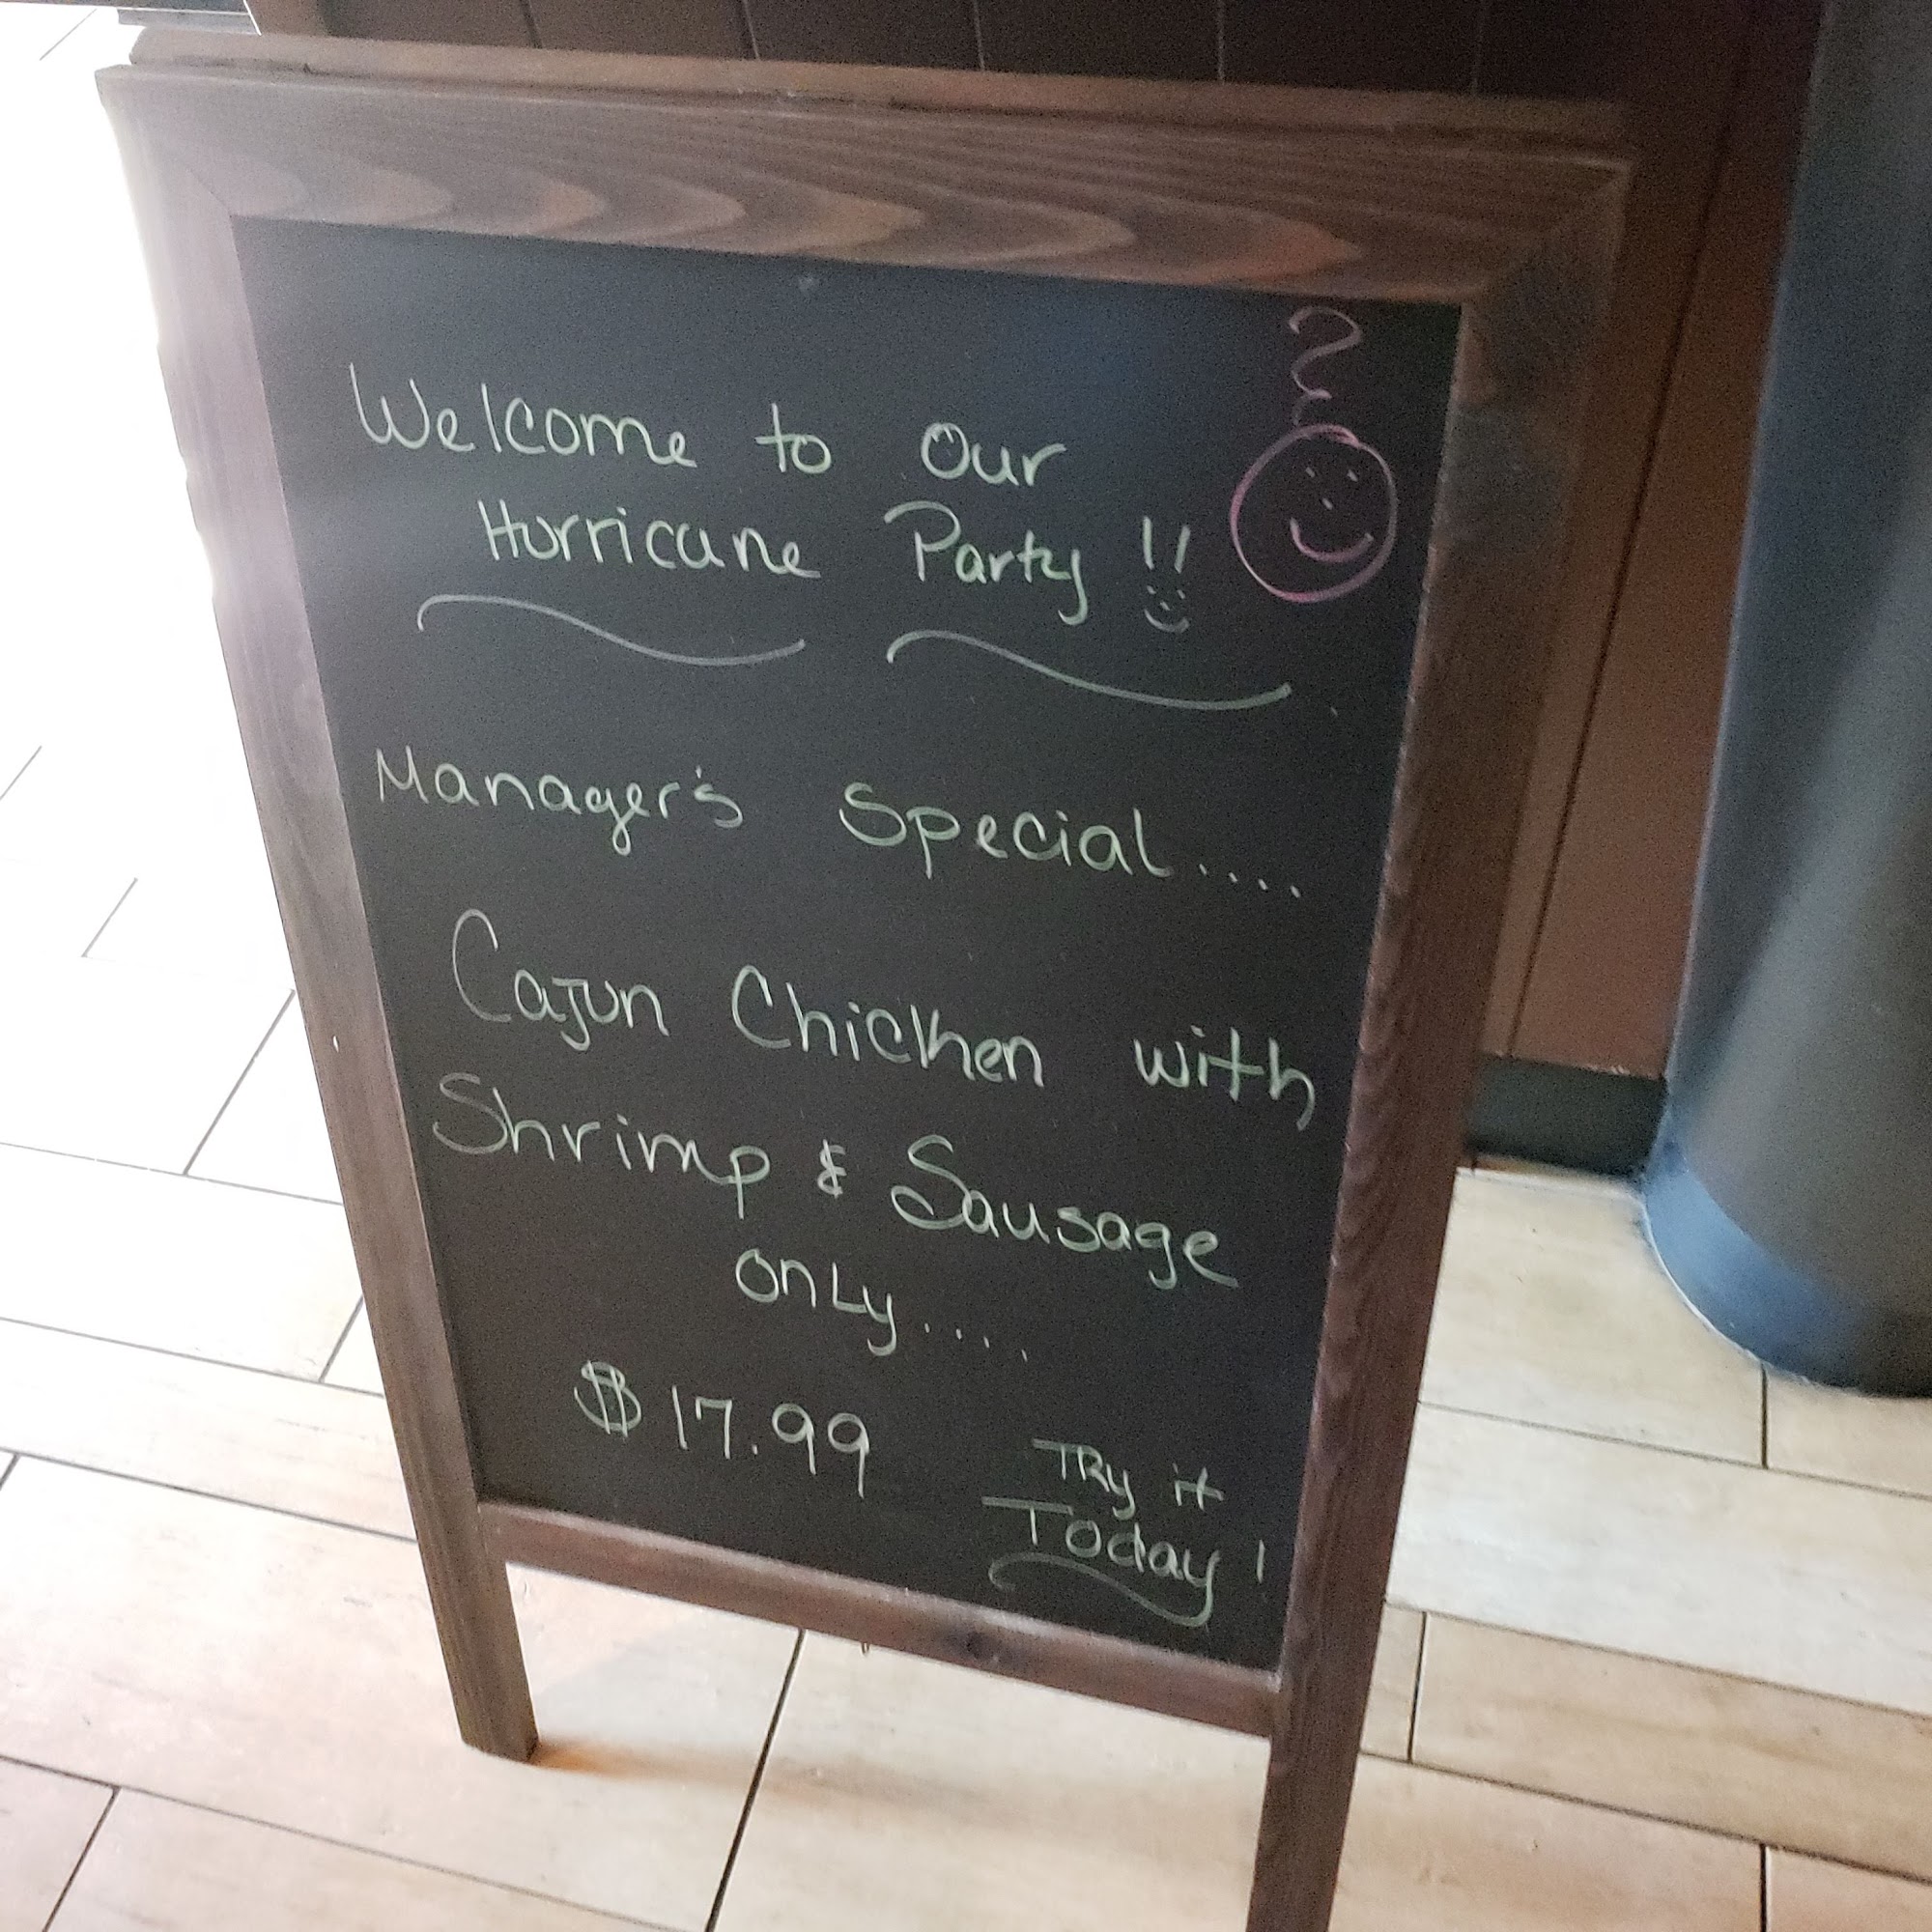 Welcome to Our
Hurricane Party !!
Manager's Special....
Cajun Chicken with
Shrimp & Sausage
only....
$17.99
TRy it
Today!